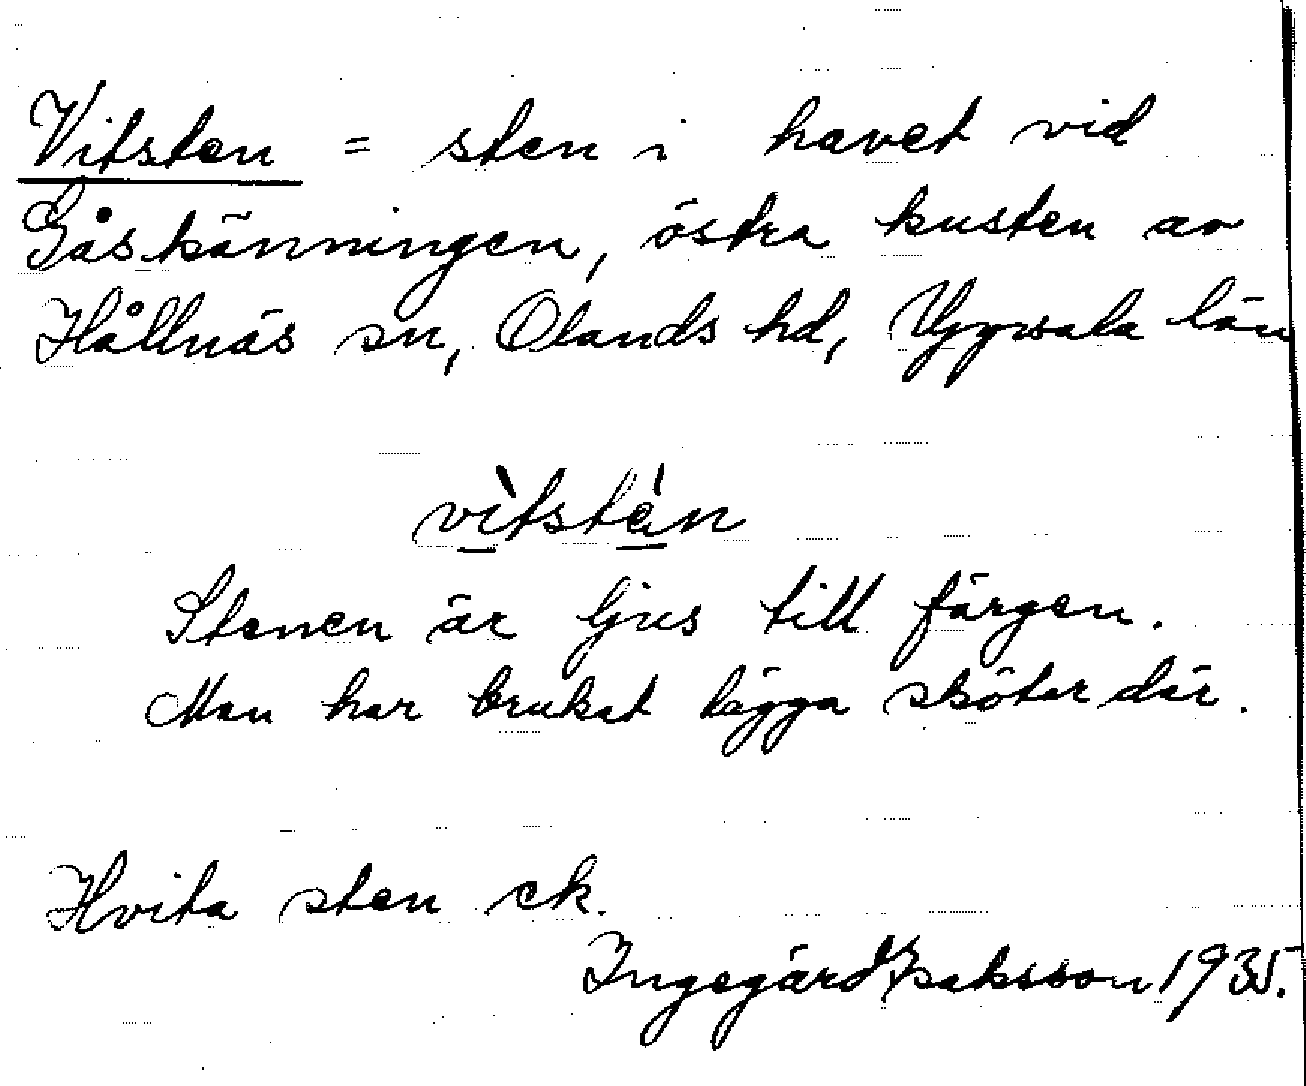 Vitsten = sten i havet vid
Gåskänningen, östra kusten av
Hållnäs sn, Olands hd, Uppsala län
vìtstén
Stenen är ljus till färgen.
Man har brukat lägga skötar där.
Hvita sten ek.
Ingegärd Isaksson 1935.